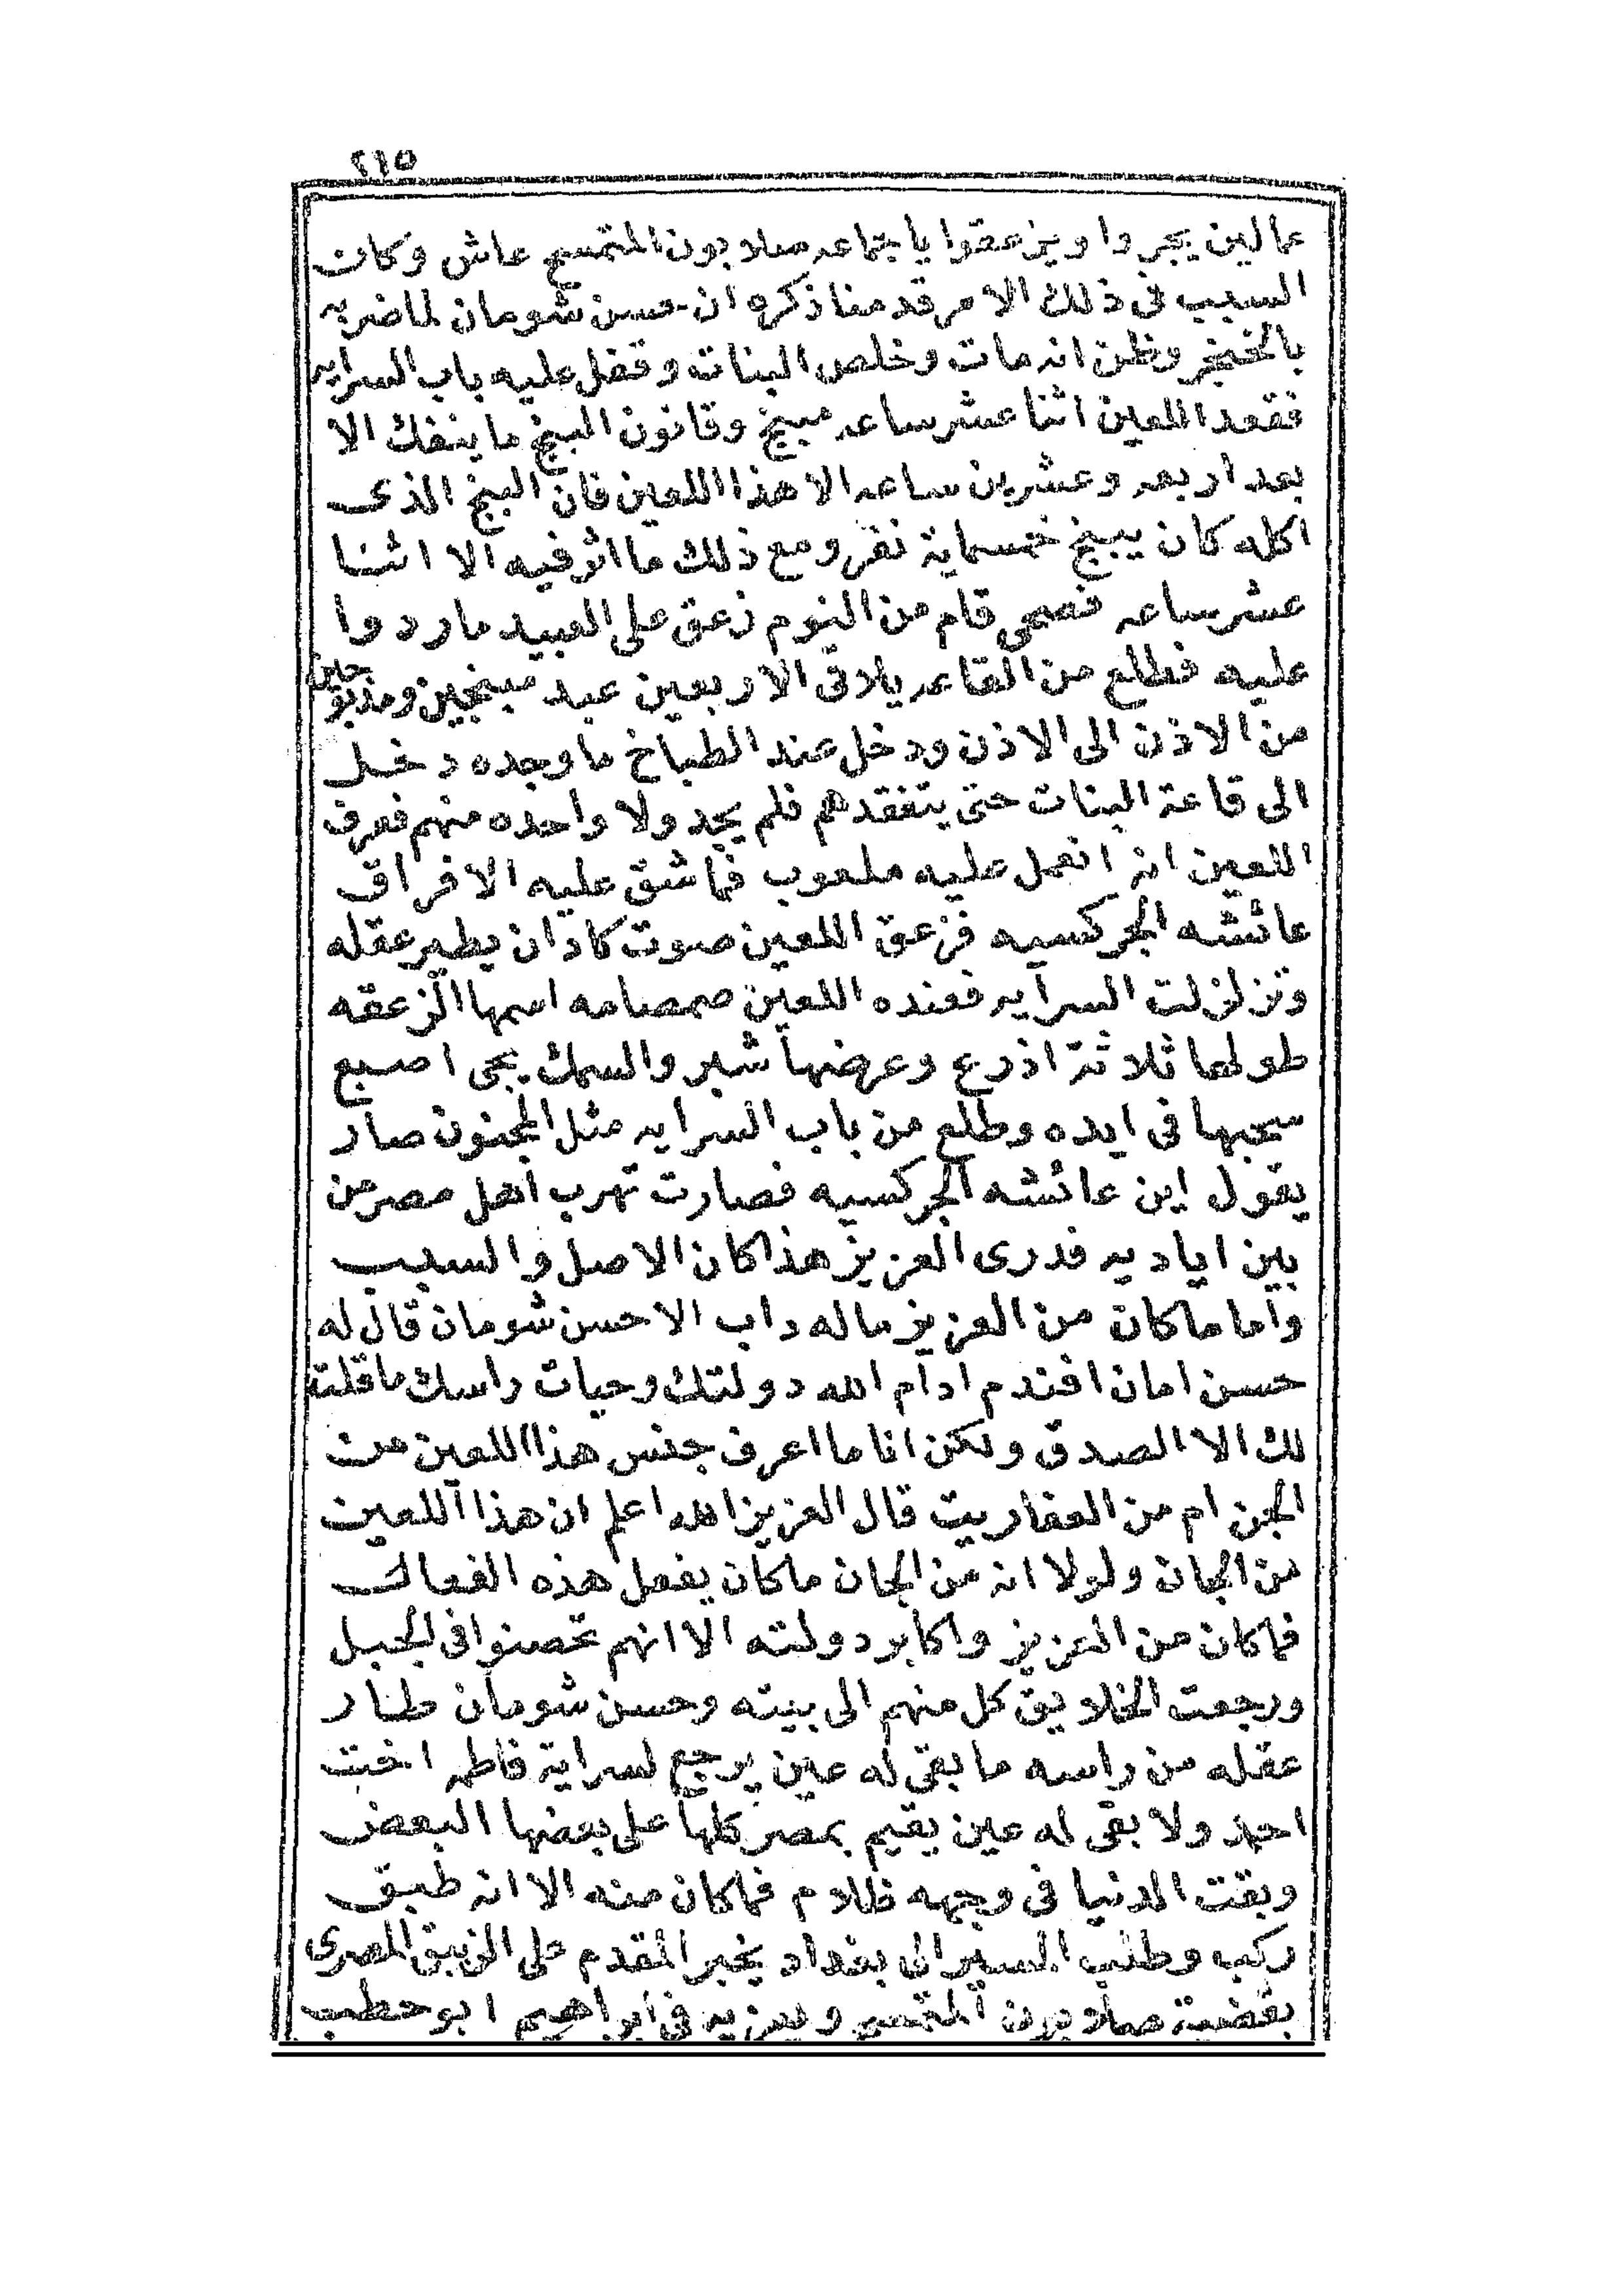 ٢١٥
عمالين يجروا ويزعقوا يا جماعه صلابون التمسيح عاش وكان
السبب فى ذلك الامر قد منا ذكره ان حسن شومان لما ضربه
بالخنجر وظن انه مات وخلص البنات وقفل عليه باب السرايه
فقعد اللعين اثنا عشر ساعه مبنج وقانون البنج ما ينفك الا
بعد اربعه وعشرين ساعه الا هذا اللعين فان البنج الذى
اكله كان يبنج خمسماية نفر ومع ذلك ما اثر فيه الا اثنا
عشر ساعه فصحى قام من النوم زعق على العبيد ما ردوا
عليه فطلع من القاعه يلاقى الاربعين عبد مبنجين ومذبوحين
من الاذن الى الاذن ودخل عند الطباخ ما وجده دخل
الى قاعة البنات حتى يتفقدهم فلم يجد ولا واحده منهم فعرف
اللعين انه انعمل عليه ملعوب فما شق عليه الا فراق
عائشه الجركسيه فزعق اللعين صوت كاد ان يطير عقله
وتزلزلت السرايه فعنده اللعين صمصامه اسمها الزعقه
طولها ثلاثة اذرع وعرضها شبر والسمك يجى اصبع
سحبها فى ايده وطلع من باب السرايه مثل المجنون صار
يقول اين عائشه الجركسيه فصارت تهرب اهل مصر من
بين اياديه فدرى العزيز هذا كان الاصل والسبب
واما ما كان من العزيز ماله داب الا حسن شومان قال له
حسن امان افندم ادام الله دولتك وحيات راسك ما قلت
لك الا الصدق ولكن انا ما اعرف جنس هذا اللعين من
الجن ام من العفاريت قال العزيز الله اعلم ان هذا اللعين
من الجان ولولا انه من الجان ما كان يفعل هذه الفعال
فما كان من العزيز واكابر دولته الا انهم تحصنوا فى الجبل
ورجعت الخلايق كل منهم الى بيته وحسن شومان طار
عقله من راسه ما بقى له عين يرجع لسراية فاطمه اخت
احمد ولا بقى له عين يقيم بمصر كلها على بعضها البعض
وبقت الدنيا فى وجهه ظلام فما كان منه الا انه طبق
ركب وطلب المسير الى بغداد يخبر المقدم على الزيبق المصرى
بقضية صلابون ابراهيم ابو حطب